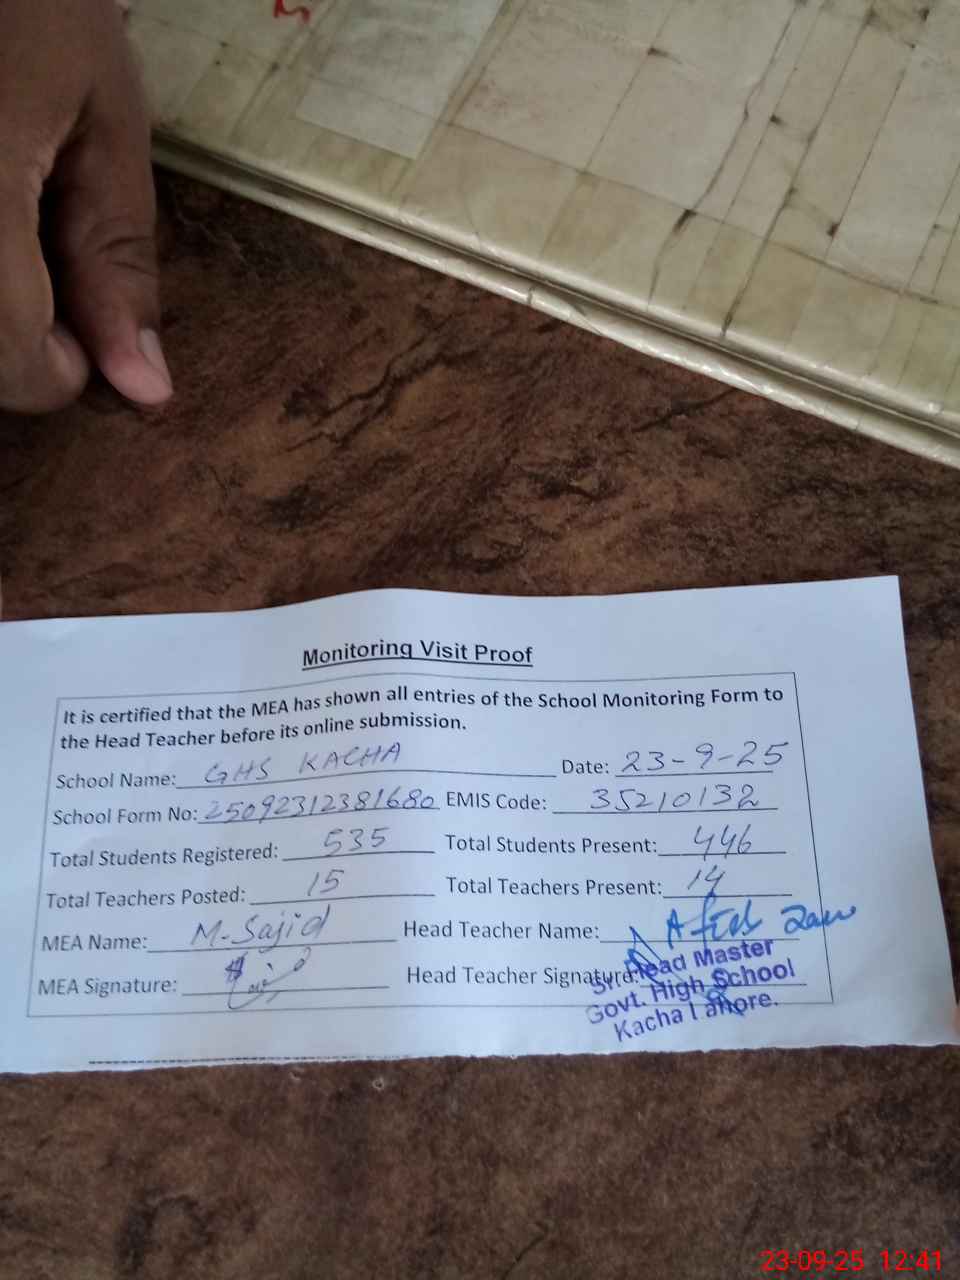 Monitoring Visit Proof
It is certified that the MEA has shown all entries of the School Monitoring Form to
the Head Teacher before its online submission.
School Name: GHS KACHA Date: 23-9-25
School Form No: 25092312381680 EMIS Code: 35210132
Total Students Registered: 535 Total Students Present: 446
Total Teachers Posted: 15 Total Teachers Present: 14
MEA Name: M. Sajid Head Teacher Name:
MEA Signature: Head Teacher Signature:
Sr. Head Master
Govt. High School
Kacha Lahore.
23-09-25 12:41